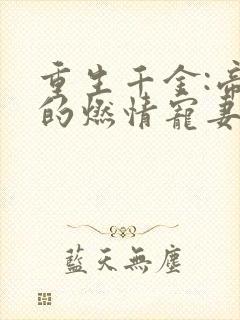 重生千金:帝
的燃情寵妻
藍天無塵